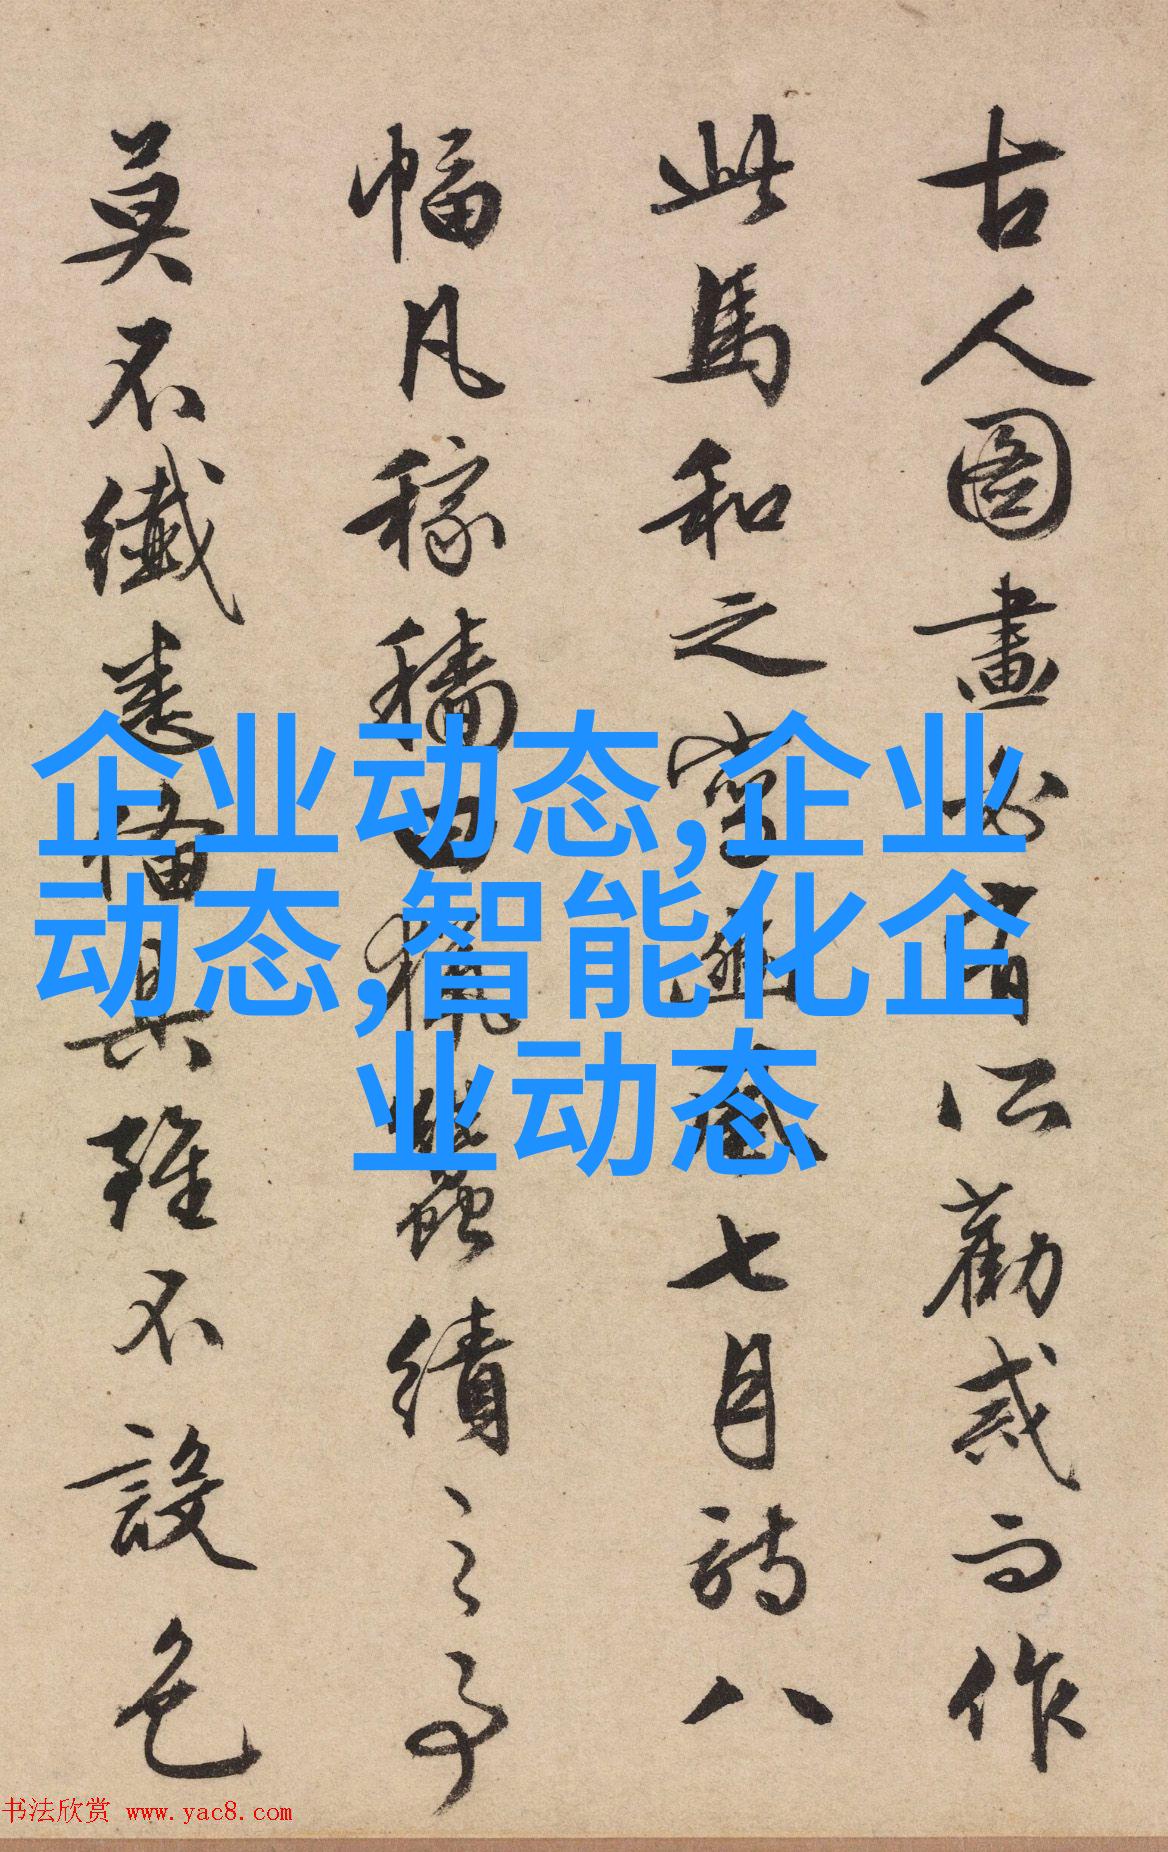 古人圖畫必有所勸戒而作
此馬和之寫豳風七月詩八
幅凡稼穡田獵蠶績之事
莫不纖悉備具雖不設色
企业动态,企业
动态,智能化企
业动态
书法欣赏 www.yac8.com